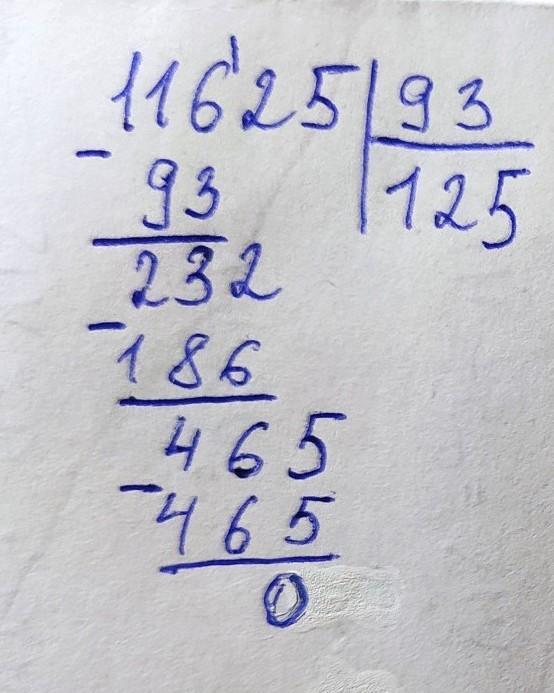 11625 | 93
- 93 | 125
232
- 186
465
- 465
0